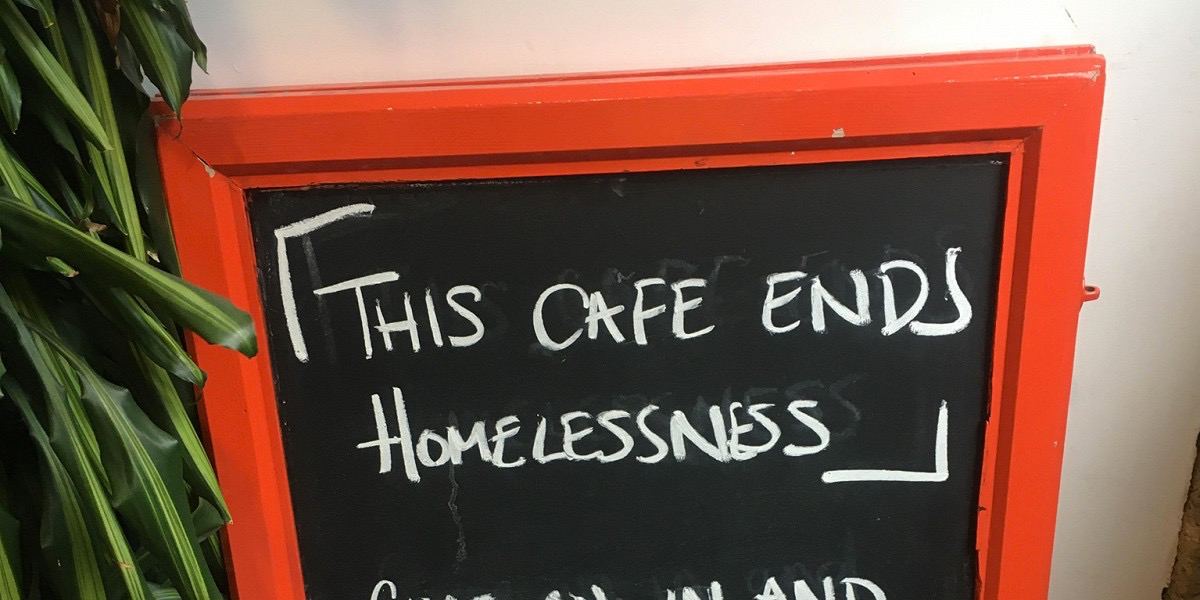 THIS CAFE ENDS
HOMELESSNESS
COME ON IN AND